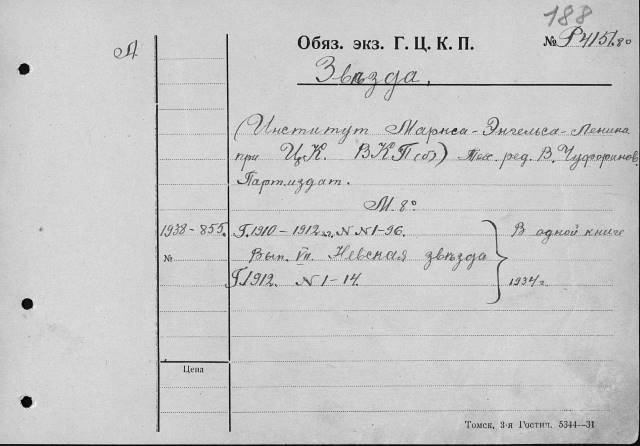 188
Обяз. экз. Г. Ц. К. П. № Р4151.80
А
Звѣзда.
(Институт Маркса-Энгельса-Ленина
при ЦК. ВКП(б)) Тех. ред. В. Чуфоринов,
Партиздат.
М. 8º
1938-855. Г. 1910-1912 г.г. N N 1-96. В одной книге
№ Вып. VII. Невская звѣзда
Г. 1912. N 1-14. 1934 г.
Цена
Томск, 3-я Гостип. 5344—31